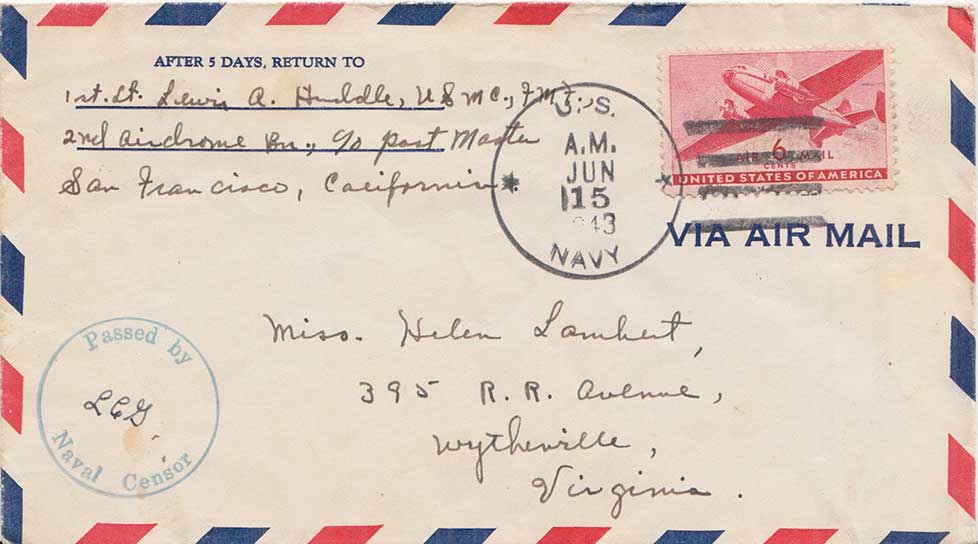 AFTER 5 DAYS, RETURN TO
1st. Lt. Lewis A. Huddle, USMC., FMF.,
2nd Airdrome Bn., c/o Post Master
San Francisco, California.
U.S.
A.M.
JUN
15
1943
NAVY
AIR 6 MAIL
CENTS
UNITED STATES OF AMERICA
VIA AIR MAIL
Miss. Helen Lambert,
395 R.R. Avenue,
Wytheville,
Virginia.
Passed by
LCG.
Naval Censor